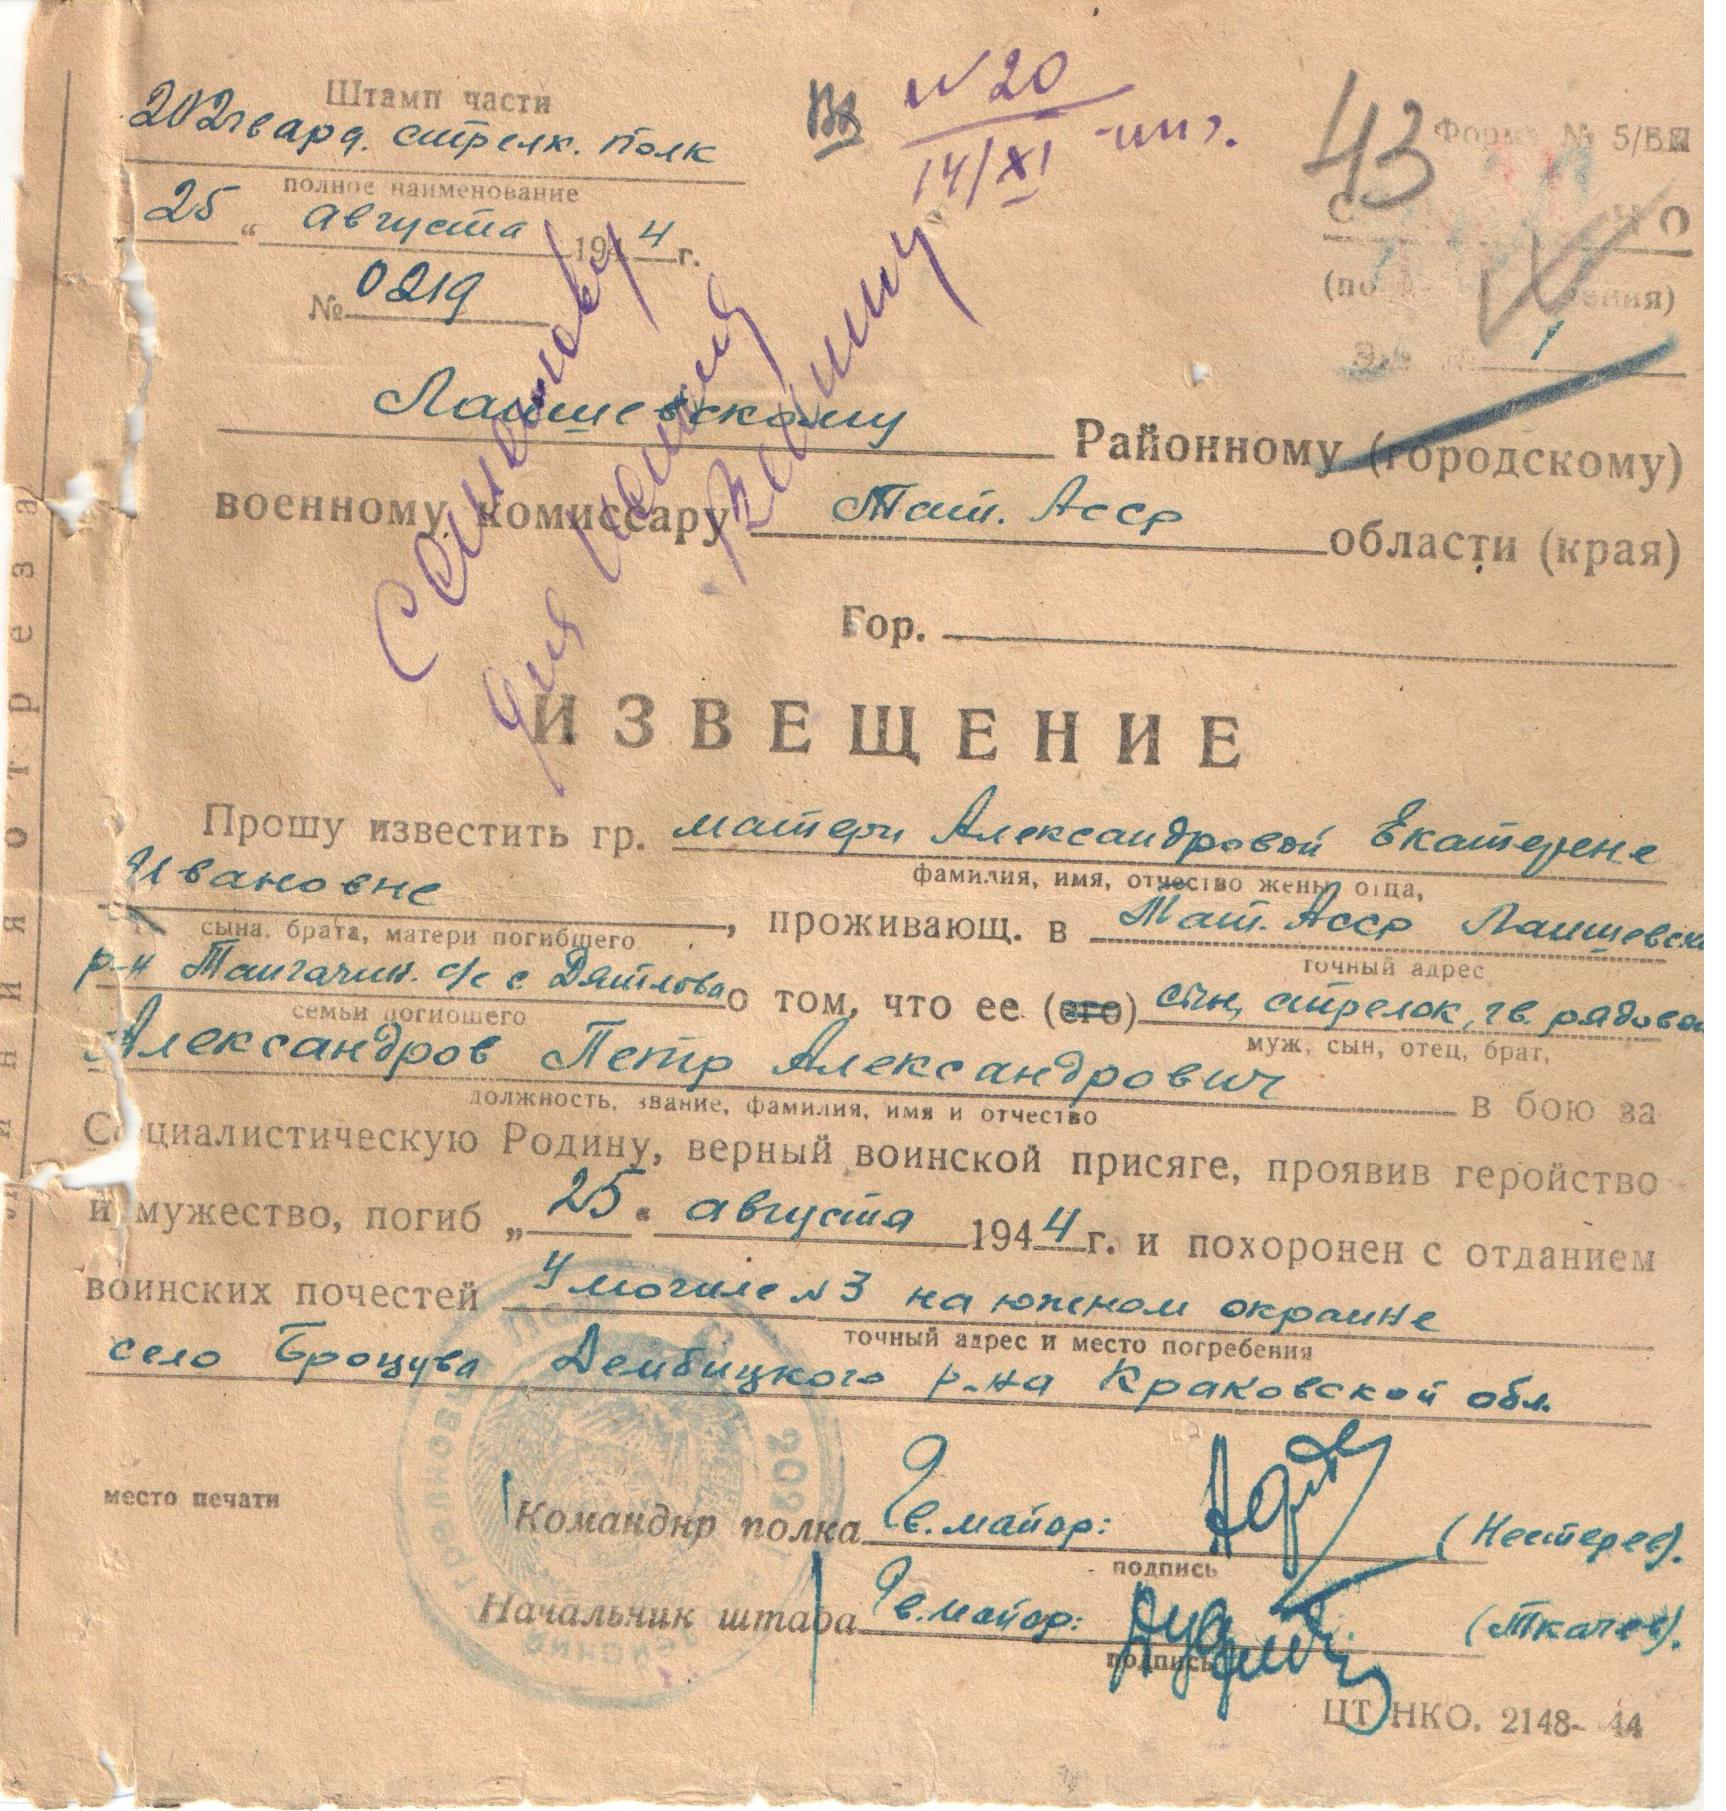 Штамп части
202 гвард. стрелк. полк
полное наименование
25 " августа 1944 г.
№ 0219
N 20
14/XI
43
Форма № 5/ВП
(по
ения)
Экз. № 1
Лаишевскому Районному (городскому)
военному комиссару Тат. Асср области (края)
Гор.
для
ИЗВЕЩЕНИЕ
Прошу известить гр. матери Александровой Екатерене
Ивановне
фамилия, имя, отчество жены, отца,
, проживающ. в Тат. Асср Лаишевски
сына, брата, матери погибшего
точный адрес
р-н Тангачин. с/с с Дятлова о том, что ее (его) сын, стрелок, гв. рядовой
семьи погибшего
муж, сын, отец, брат,
Александров Петр Александрович в бою за
должность, звание, фамилия, имя и отчество
Социалистическую Родину, верный воинской присяге, проявив геройство
и мужество, погиб „25" августа 1944 г. и похоронен с отданием
воинских почестей У могиле N 3 на южном окраине
точный адрес и место погребения
село Броцува Дембицкого р-на Краковской обл.
место печати
Командир полка Гв. майор: (Нестеров).
подпись
Начальник штаба Гв. майор: (Ткачев).
подпись
ЦТ НКО. 2148-44
Линия отреза